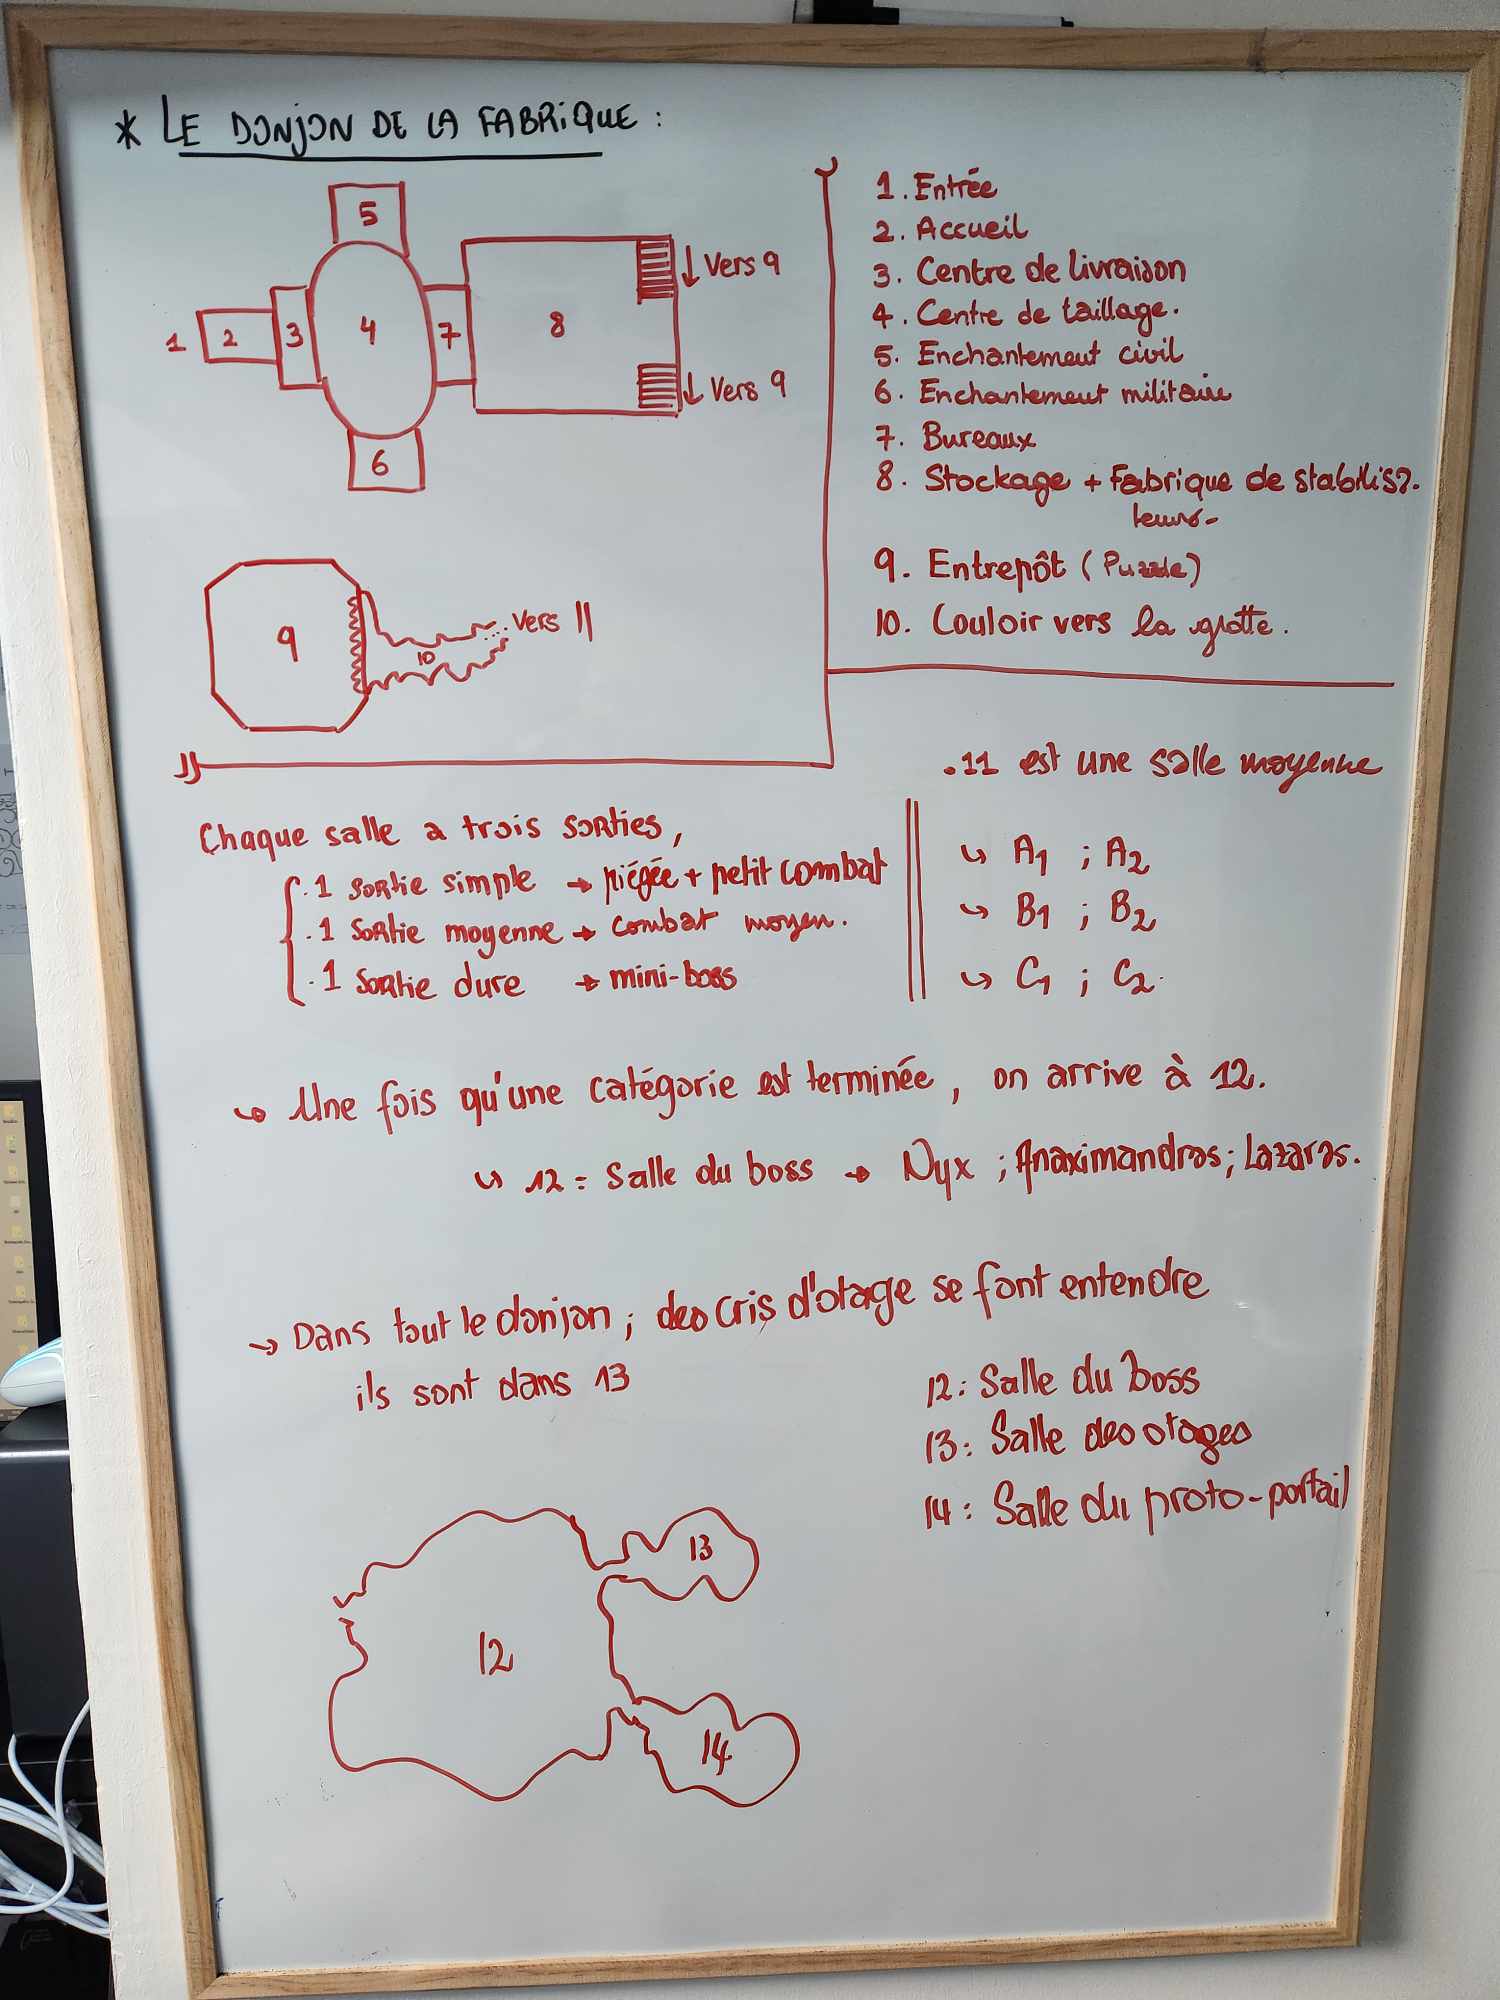 * LE DONJON DE LA FABRIQUE :
5
↓ Vers 9
1 2 3 4 7 8
↓ Vers 9
6
9
10
... Vers 11
1. Entrée
2. Accueil
3. Centre de livraison
4. Centre de taillage.
5. Enchantement civil
6. Enchantement militaire
7. Bureaux
8. Stockage + Fabrique de stabilisa-
teurs-
9. Entrepôt (Puzzle)
10. Couloir vers la grotte.
.11 est une salle moyenne
Chaque salle a trois sorties,
.1 sortie simple → piégée + petit combat
.1 sortie moyenne → combat moyen.
.1 sortie dure → mini-boss
↳ A1 ; A2
↳ B1 ; B2
↳ C1 ; C2.
↳ Une fois qu'une catégorie est terminée, on arrive à 12.
↳ 12 = Salle du boss → Nyx ; Anaximandros ; Lazaros.
→ Dans tout le donjon ; des cris d'otage se font entendre
ils sont dans 13
12 : Salle du boss
13 : Salle des otages
14 : Salle du proto-portail
13
12
14